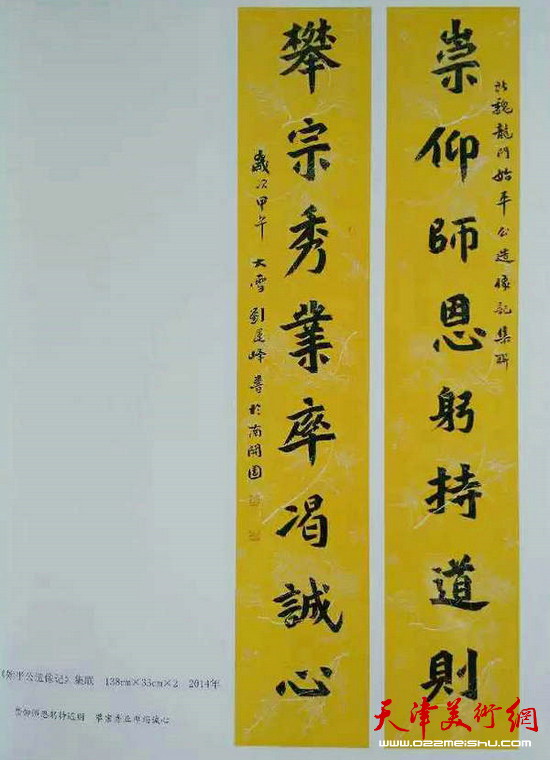 崇仰師恩躬持道則
北魏龍門始平公造像記集聯
攀宗秀業卒渴誠心
歲次甲午 大雪 劉運峰書於南開園
《始平公造像记》集联 138cm×33cm×2 2014年
崇仰师恩躬持道则 攀宗秀业卒渴诚心
天津美術網
www.022meishu.com